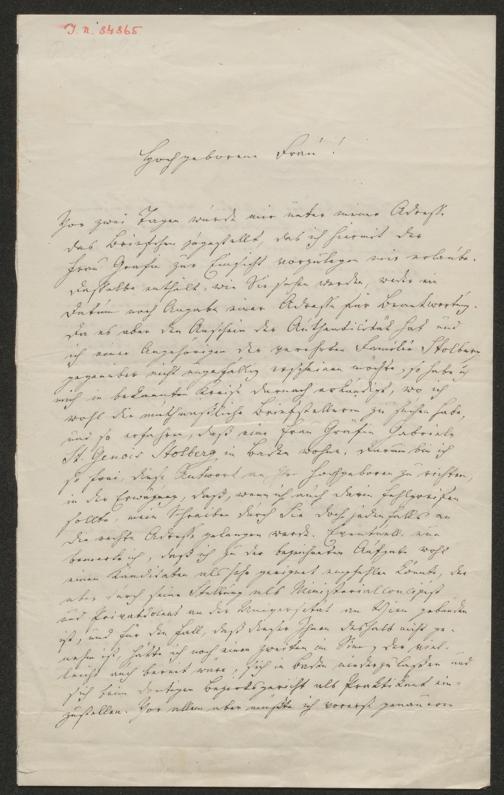 I. N. 84865
Hochgeborene Frau!
Vor zwei Tagen wurde mir unter meiner Adresse
das Briefchen zugestellt, das ich hiermit der
Frau Gräfin zur Einsicht vorzulegen mir erlaube.
Dasselbe enthält, wie Sie sehen werden, weder ein
Datum noch Angabe einer Adresse für Beantwortung.
Da es aber den Anschein der Authentilität hat und
ich einer Angehörigen der verehrten Familie Stolberg
gegenüber nicht ungefällig erscheinen möchte, so habe ich
mich in bekannten Kreise darnach erkundigt, wo ich
wohl die muthmaßliche Briefstellerin zu suchen habe,
und so erfahren, daß eine Frau Gräfin Gabriele
St. Genois Stolberg in Baden wohne. Darum bin ich
so frei, diese Antwort an Hochgeboren zu richten,
in der Erwägung, daß, wenn ich auch darin fehlgreifen
sollte, mein Schreiben durch Sie doch jedenfalls an
die rechte Adresse gelangen werde. Eventuell nun
bemerke ich, daß ich zu der Aufgabe wohl
einen Kandidaten als sehr geeignet empfehlen könnte, der
aber durch seine Stellung als Ministerialconcipist
und Privatdocent an der Universität an Wien gebunden
ist, und für den Fall, daß dieser Ihnen deshalb nicht ge-
nehm ist, hätte ich noch einen zweiten im Sinn, der viel-
leicht auch bereit wäre, sich in Baden niederzulassen und
sich beim dortigen Bezirksgericht als Praktikant ein-
zustellen. Vor allem aber müßte ich vorerst genauere